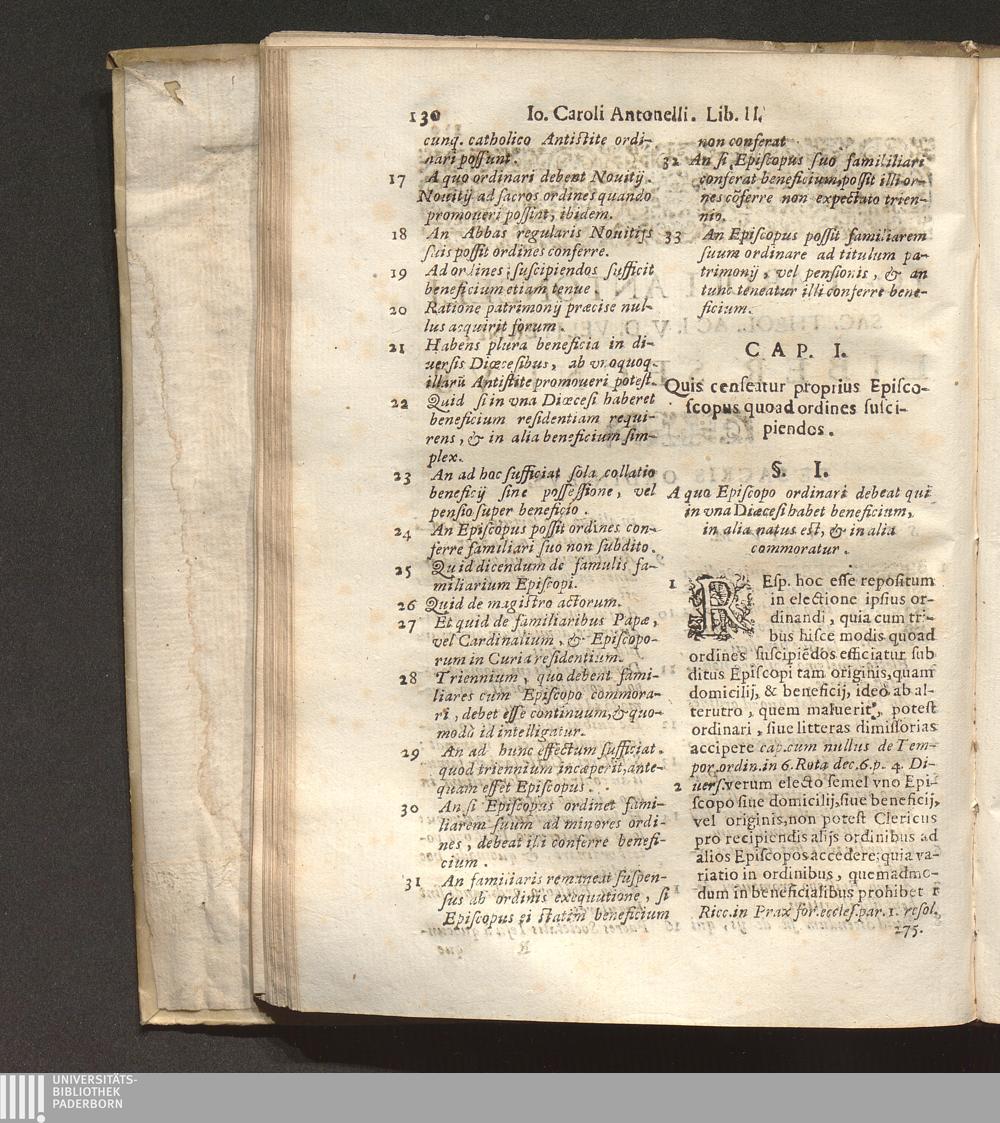 130 Io. Caroli Antonelli. Lib. II.
cunq. catholico Antiſtite ordi-
nari poſſunt.
17 A quo ordinari debent Nouitij.
Nouitij ad ſacros ordines quando
promoueri poſſint, ibidem.
18 An Abbas regularis Nouitijs
ſuis poſſit ordines conferre.
19 Ad ordines ſuſcipiendos ſufficit
beneficium etiam tenue
20 Ratione patrimonij præcise nul-
lus acquirit forum.
21 Habens plura beneficia in di-
uerſis Diœceſibus, ab vnoquoq.
illarũ Antiſtite promoueri poteſt.
22 Quid ſi in vna Diœceſi haberet
beneficium reſidentiam requi-
rens, & in alia beneficium ſim-
plex.
23 An ad hoc ſufficiat ſola collatio
beneficij ſine poſſeſſione, vel
penſio ſuper beneficio.
24 An Epiſcopus poſſit ordines con-
ferre familiari ſuo non ſubdito.
25 Quid dicendum de famulis fa-
miliarium Epiſcopi.
26 Quid de magiſtro actorum.
27 Et quid de familiaribus Papæ,
vel Cardinalium, & Epiſcopo-
rum in Curia reſidentium.
28 Triennium, quo debent fami-
liares cum Epiſcopo commora-
ri, debet eſſe continuum, & quo-
modò id intelligatur.
29 An ad hunc effectum ſufficiat.
quod triennium incæperit, ante-
quam eſſet Epiſcopus.
30 An ſi Epiſcopus ordinet fami-
liarem ſuum ad minores ordi-
nes, debeat illi conferre benefi-
cium.
31 An familiaris remaneat ſuſpen-
ſus ab ordinis exequutione, ſi
Epiſcopus ei ſtatim beneficium
non conferat
32 An ſi Epiſcopus ſuo famililiari
conferat beneficium, poſſit illi or-
nes cõferre non expectato trien-
nio.
33 An Epiſcopus poſſit familiarem
ſuum ordinare ad titulum pa-
trimonij, vel penſionis, & an
tunc teneatur illi conferre bene-
ficium.
CAP. I.
Quis cenſeatur proprius Epiſco-
ſcopus quoad ordines ſuſci-
piendos.
§. I.
A quo Epiſcopo ordinari debeat qui
in vna Diœceſi habet beneficium,
in alia natus eſt, & in alia
commoratur.
1 REſp. hoc eſſe repoſitum
in electione ipſius or-
dinandi, quia cum tri-
bus hiſce modis quoad
ordines ſuſcipiẽdos efficiatur ſub
ditus Epiſcopi tam originis, quam
domicilij, & beneficij, ideò ab al-
terutro, quem maluerit, poteſt
ordinari, ſiue litteras dimiſſorias
accipere cap. cum nullus de Tem-
por. ordin. in 6. Rota dec. 6. p. 4. Di-
2 uerſ. verum electo ſemel vno Epi-
ſcopo ſiue domicilij, ſiue beneficij,
vel originis, non poteſt Clericus
pro recipiendis alijs ordinibus ad
alios Epiſcopos accedere; quia va-
riatio in ordinibus, quemadmo-
dum in beneficialibus prohibet r
Ricc. in Prax for. eccleſ. par. 1. reſol.
275.
UNIVERSITÄTS-
BIBLIOTHEK
PADERBORN